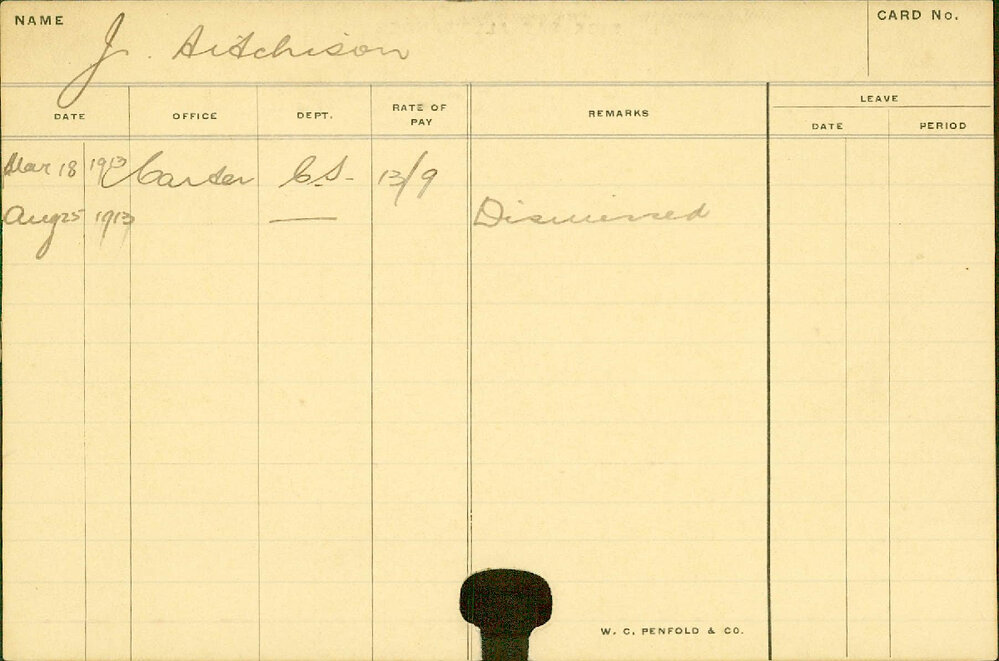 NAME
J. Aitchison
CARD No.
DATE OFFICE DEPT. RATE OF PAY REMARKS LEAVE
DATE PERIOD
Mar 18 1913 Carter C.S. 13/9
Aug 25 1913 — Dismissed
W. C. PENFOLD & CO.